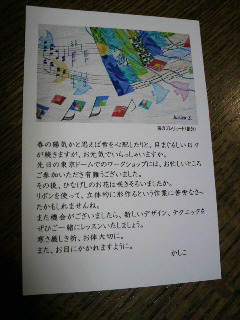 春の陽気かと思えば雪を心配したりと、目まぐるしい日々
が続きますが、お元気でいらっしゃいますか。
先日の東京ドームでのワークショップには、お忙しいところ
ご参加いただき有難うございました。
その後、ひなげしのお花は咲きそろいましたか。
リボンを使って、立体的に形作るという作業に苦労なさっ
たかもしれませんね。
また機会がございましたら、新しいデザイン、テクニックを
ぜひご一緒にレッスンいたしましょう。
寒さ厳しき折、お体大切に。
また、お目にかかれますように。
かしこ